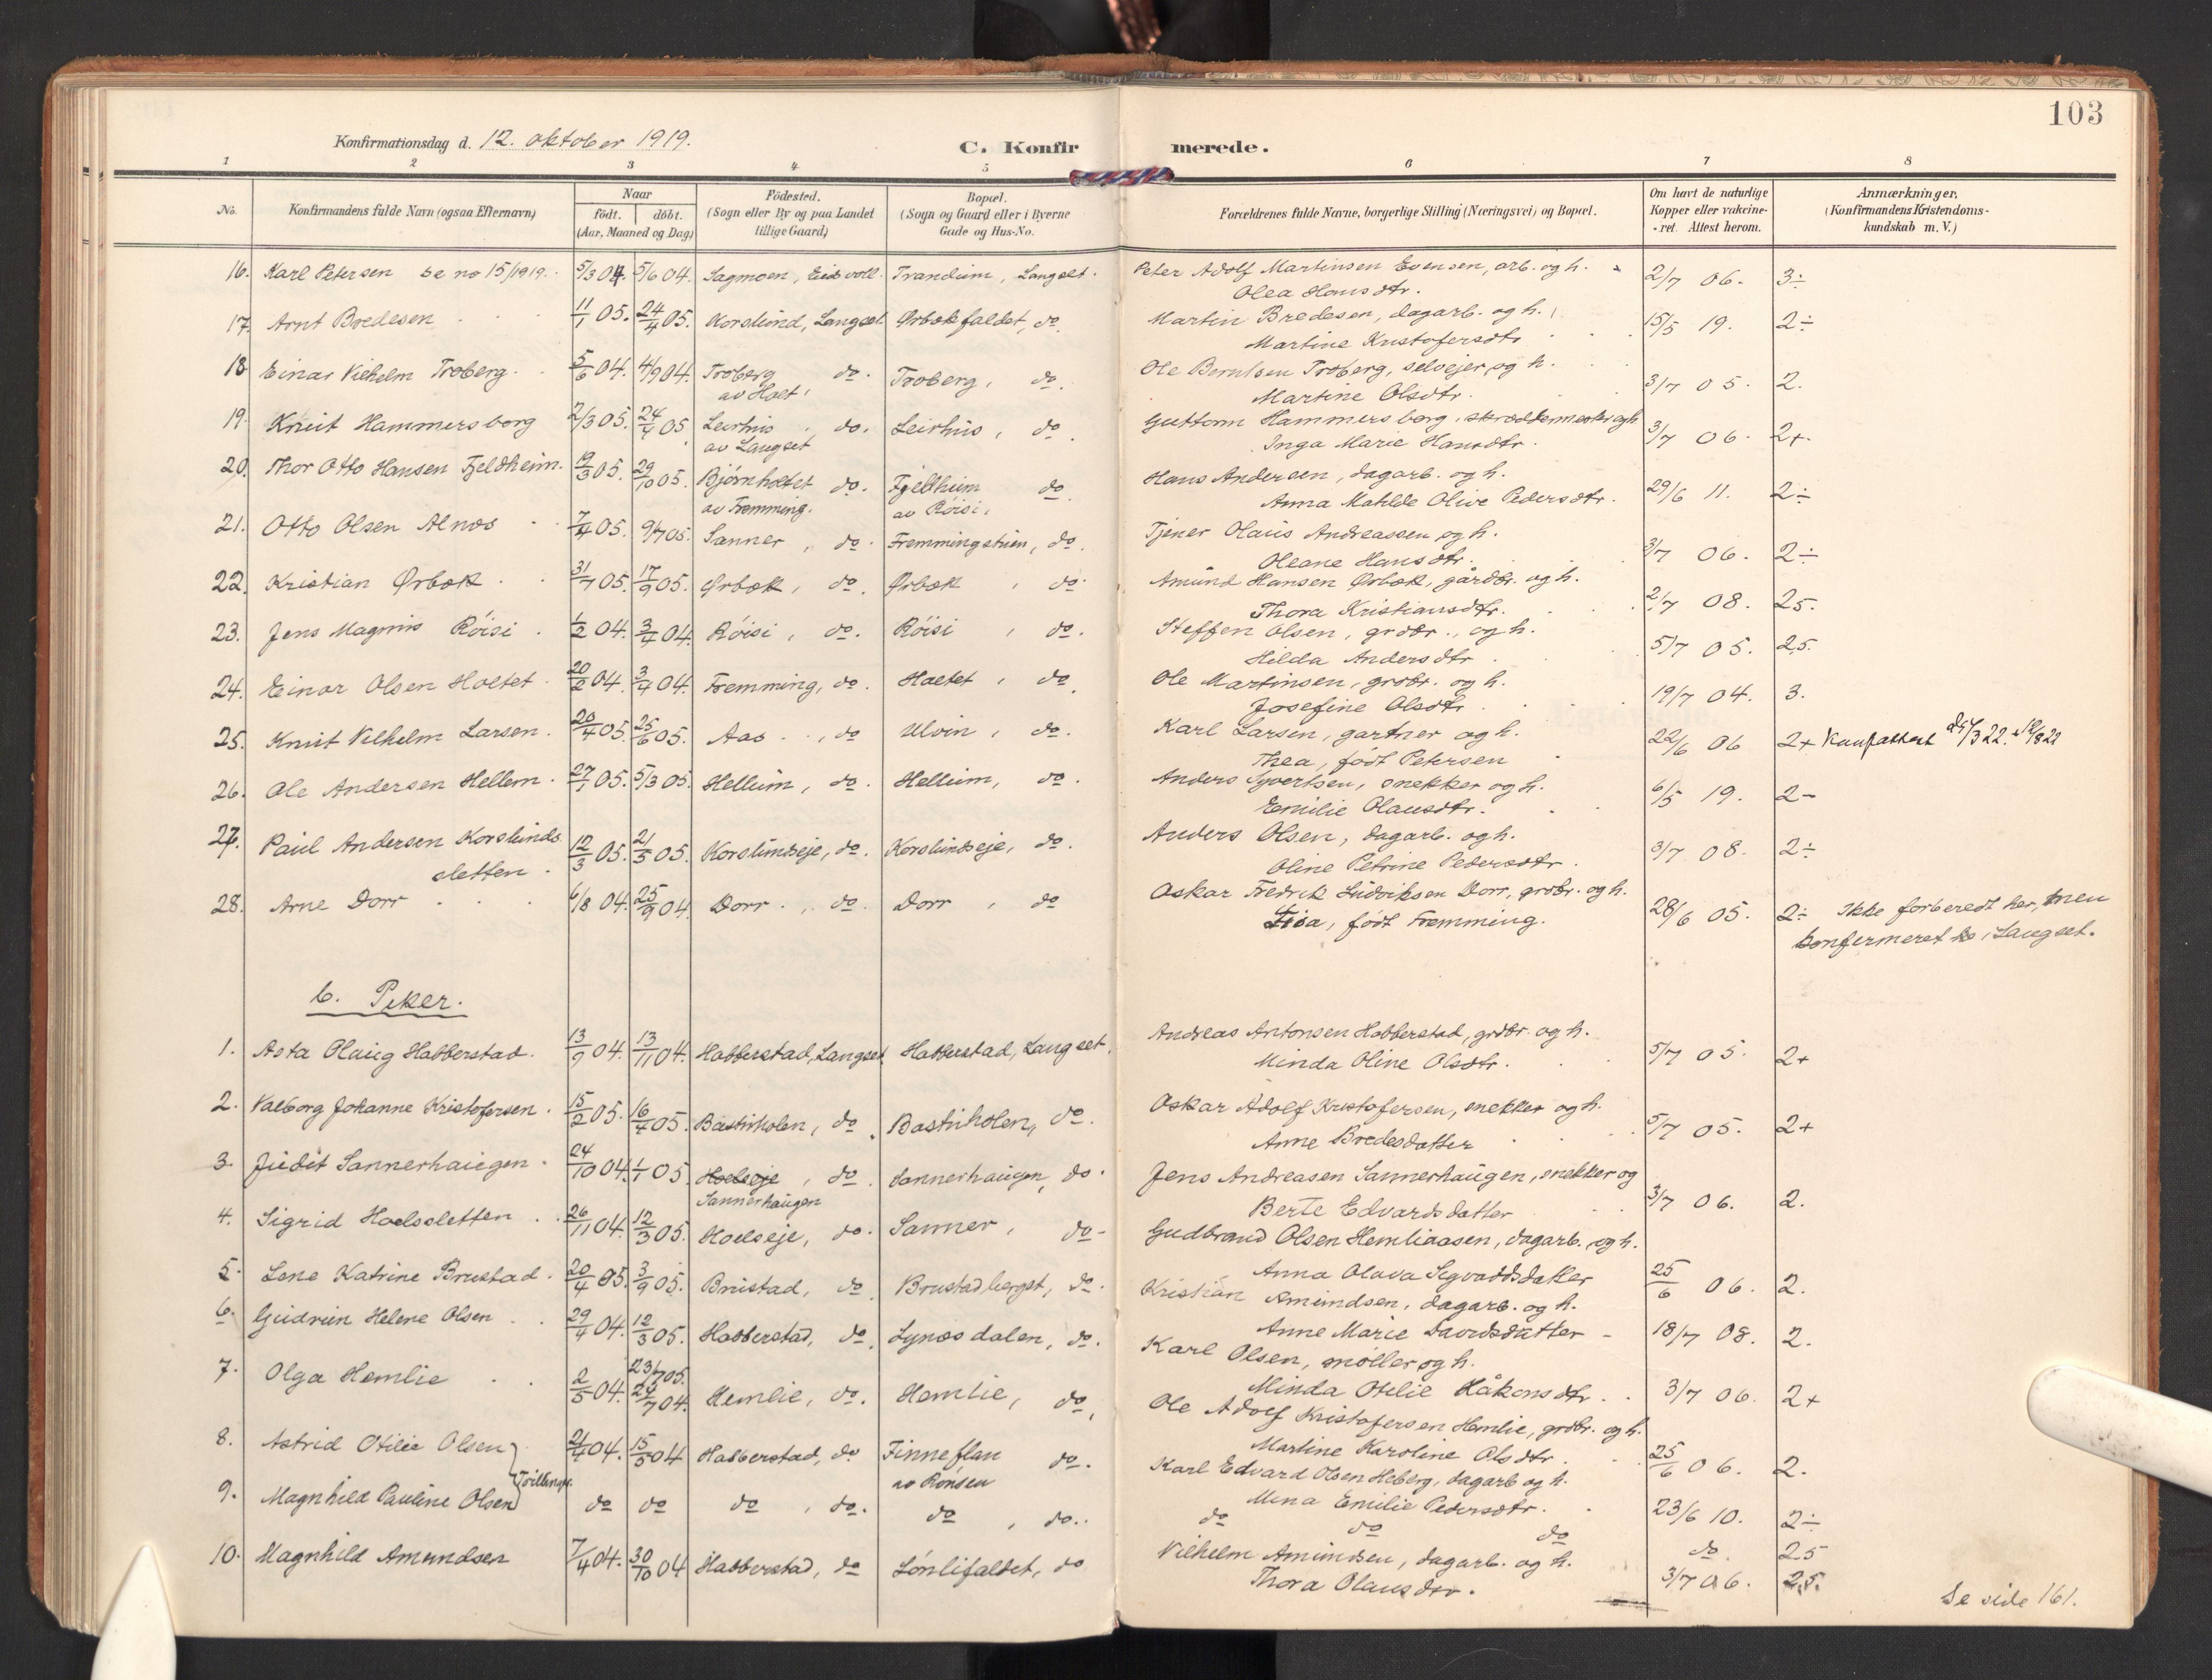 103
Konfirmationsdag d. 12. oktober 1919.
C. Konfirmerede.
1 2 3 4 5 6 7 8
No.
Konfirmandens fulde Navn (ogsaa Efternavn)
Naar
født. | döbt.
(Aar, Maaned og Dag)
Födested.
(Sogn eller By og paa Landet
tillige Gaard)
Bopæl.
(Sogn og Gaard eller i Byerne
Gade og Hus-No.
Forældrenes fulde Navne, borgerlige Stilling (Næringsvei) og Bopæl.
Om havt de naturlige
Kopper eller vakcine-
-ret. Attest herom.
Anmærkninger,
(Konfirmandens Kristendoms-
kundskab m. V.)
16. Karl Petersen se no 15/1919. 5/3 04 5/6 04. Sagmoen, Eidsvoll. Trandum, Langset. Peter Adolf Martinsen Evensen, arb. og h. 2/7 06. 3÷
Olea Hansdtr.
17. Arnt Bredesen 11/1 05. 24/4 05. Korslund, Langset Ørbækfaldet, do. Martin Bredesen, dagarb. og h. 15/5 19. 2÷
Martine Kristofersdtr
18. Einar Vilhelm Troberg. 5/6 04. 4/9 04. Troberg do. Troberg, do. Ole Berntsen Troberg, selveier og h. 3/7 05. 2.
av Holt, Martine Olsdtr.
19. Knut Hammersborg 2/3 05. 24/4 05 Leirhus, do. Leirhus, do. Guttorm Hammersborg, skræddermester og h. 3/7 06. 2+.
av Langset Inga Marie Hansdtr.
20. Thor Otto Hansen Fjeldheim. 19/3 05. 29/10 05. Bjørnholtet do. Fjeldheim do. Hans Andersen, dagarb. og h. 29/6 11. 2÷
av Fremming. av Röisi. Anna Matilde Olive Pedersdtr.
21. Otto Olsen Alnæs 7/4 05. 9/7 05. Sanner, do. Fremmingstuen, do. Tjener Olaus Andreassen og h. 3/7 06. 2÷
Oleane Hansdtr.
22. Kristian Ørbæk. 31/7 05. 17/9 05. Ørbæk, do. Ørbæk, do. Amund Hansen Ørbæk, gårdbr. og h. 2/7 08. 25.
Thora Kristiansdtr.
23. Jens Magnus Röisi. 1/2 04. 3/4 04. Röisi, do. Röisi, do. Steffen Olsen, grdbr., og h. 5/7 05. 2,5.
Hilda Andersdtr
24. Einar Olsen Holtet. 20/2 04. 3/4 04. Fremming, do. Holtet, do. Ole Martinsen, grdbr. og h. 19/7 04. 3.
Josefine Olsdtr.
25. Knut Vilhelm Larsen. 20/4 05. 25/6 05. Aas, do Ulvin, do. Karl Larsen, gartner og h. 22/6 06 2+ Kunfattest
Thea, født Petersen
26. Ole Andersen Hellem. 27/1 05. 5/3 05. Hellum, do. Hellum, do. Anders Syvertsen, snekker og h. 6/5 19. 2-
Emilie Olausdtr.
27. Paul Andersen Korslunds 12/3 05. 21/5 05. Korslundseje, do. Korslundseje, do. Anders Olsen, dagarb. og h. 3/7 08. 2÷
sletten. Oline Petrine Pedersdtr.
28. Arne Dorr 6/8 04. 25/9 04. Dorr, do. Dorr, do Oskar Fredrik Ludviksen Dorr, grdbr. og h. 28/6 05. 2÷ Ikke forberedt her, men
Lisa, født Fremming. konfirmeret i Langset.
b. Piker.
1. Asta Olaug Habberstad. 13/9 04. 13/11 04. Habberstad, Langset Habberstad, Langset. Andreas Antonsen Habberstad, grdbr. og h. 5/7 05. 2+
Minda Oline Olsdtr.
2. Valborg Johanne Kristofersen. 15/2 05. 16/4 05. Bastuholen, do. Bastuholen, do. Oskar Adolf Kristofersen, snekker og h. 5/7 05. 2+
Anne Bredesdatter
3. Judit Sannerhaugen. 24/10 04. 1/1 05. Hoelseje, do. Sannerhaugen, do. Jens Andreasen Sannerhaugen, snekker og 3/7 06. 2.
Sannerhaugen Berte Edvardsdatter
4. Sigrid Hoelssletten. 26/11 04. 12/3 05. Hoelseje, do. Sanner, do- Gudbrand Olsen Hemliaasen, dagarb. og h. 25/6 06. 2.
Anna Olava Sigvaldsdatter
5. Lene Katrine Brustad. 20/4 05. 3/9 05. Brustad, do. Brustadberget, do. Kristian Amundsen, dagarb. og h. 18/7 08. 2.
Anne Marie Davidsdatter
6. Gudrun Helene Olsen 29/4 04. 12/3 05. Habberstad, do. Lynæsdalen, do. Karl Olsen, møller og h. 3/7 06. 2+
23/7 05. Minda Otelie Håkonsdtr.
7. Olga Hemlie 2/5 04. 24/7 04. Hemlie, do. Hemlie, do. Ole Adolf Kristofersen Hemlie, grdbr. og h. 25/6 06. 2.
Martine Karoline Olsdtr.
8. Astrid Otilie Olsen 21/4 04. 15/5 04 Habberstad, do Finneflan do. Karl Edvard Olsen Heberg, dagarb og h. 23/6 10. 2÷
Tvillinger. av Rønsen Mena Emilie Pedersdtr.
9. Magnhild Pauline Olsen do do do, do. do, do.. do do do do. 25
10. Magnhild Amundsen 7/4 04. 30/10 04 Habberstad, do Lønlifaldet, do Vilhelm Amundsen, dagarb. og h. 3/7 06. 2,5.
Thora Olausdtr.
Se side 161.